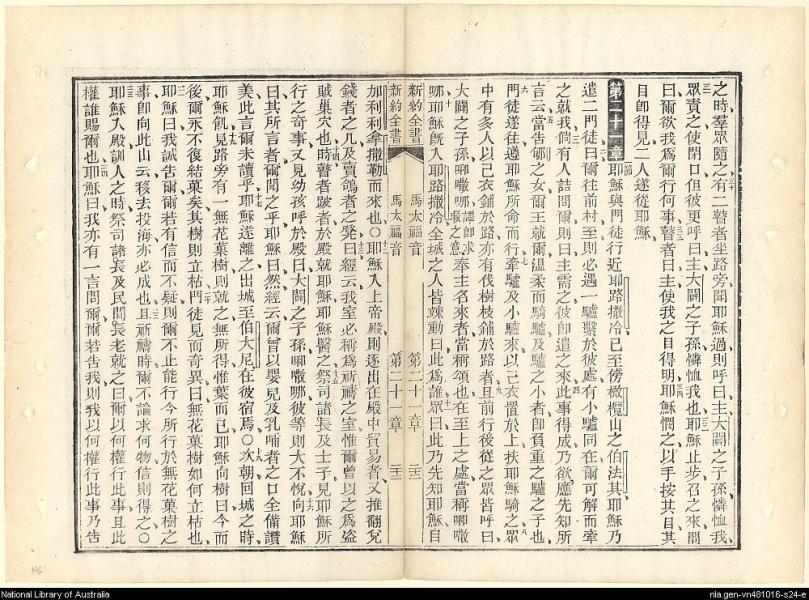 之時羣眾隨之有二瞽者坐路旁聞耶穌過則呼曰主大闢之子孫憐恤我
眾責之使閉口但彼更呼曰主大闢之子孫憐恤我也耶穌止步召之來問
曰爾欲我為爾行何事瞽者曰主使我之目得明耶穌憫之以手按其目其
目卽得見二人遂從耶穌
第二十一章耶穌與門徒行近耶路撒冷已至傍橄欖山之伯法其耶穌乃
遣二門徒曰爾往前村至則必遇一驢繫於彼處有小驢同在爾可解而牽
之就我倘有人詰問爾則曰主需之彼卽遣之來此事得成乃欲應先知所
言云當告郇之女爾王就爾溫柔而騎驢及驢之小者卽負重之驢之子也
門徒遂往遵耶穌所命而行牽驢及小驢來以己衣置於上扶耶穌騎之眾
中有多人以己衣鋪於路亦有伐樹枝鋪於路者且前行後從之眾皆呼曰
大闢之子孫㗢㘔哪譯卽求救之意奉主名來者當稱頌也在至上之處當稱㗢㘔
哪耶穌旣入耶路撒冷全城之人皆竦動曰此為誰眾曰此乃先知耶穌自
新約全書 馬太福音 第二十一章
新約全書 馬太福音 第二十一章
加利利拿撒勒而來也○耶穌入上帝殿則逐出在殿中貿易者又推翻兌
錢者之几及賣鴿者之凳曰經云我室必稱為祈禱之室惟爾曾以之為盜
賊巢穴也時瞽者跛者於殿就耶穌耶穌醫之祭司諸長及士子見耶穌所
行之奇事又見幼孩呼於殿曰大闢之子孫㗢㘔哪彼等則大不悅向耶穌
曰其所言者爾聞之乎耶穌曰然經云爾曾以嬰兒及乳哺者之口全備讚
美此言爾未讀乎耶穌遂離之出城至伯大尼在彼宿焉○次朝回城之時
耶穌飢見路旁有一無花菓樹則就之無所得惟葉而已耶穌向樹曰今而
後爾永不復結菓矣其樹則立枯門徒見而奇異曰無花菓樹如何立枯也
耶穌曰我誠告爾爾若有信而不疑則爾不止能行今所行於無花菓樹之
事卽向此山云移去投海亦必成也且祈禱時爾不論求何物信則得之○
耶穌入殿訓人之時祭司諸長及民間長老就之曰爾以何權行此事且此
權誰賜爾也耶穌曰我亦有一言問爾爾若告我則我以何權行此事乃告
National Library of Australia
nla.gen-vn481016-s24-e